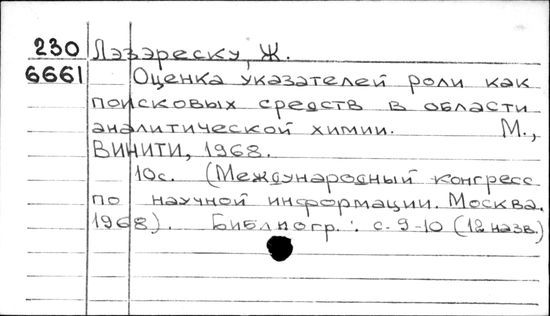 230 Лэзэреску, Ж.
6661 Оценка указателей роли как
поисковых средств в области
аналитической химии. М.,
ВИНИТИ, 1968.
10с. (Международный конгресс
по научной информации. Москва.
1968). Библиогр.: с. 9-10 (12 назв.)